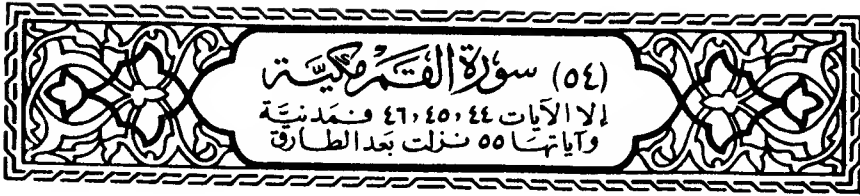 (٥٤) سورة القمر مكيّة
إلا الآيات ٤٤، ٤٥، ٤٦ فمدنيّة
وآياتها ٥٥ نزلت بعد الطارق